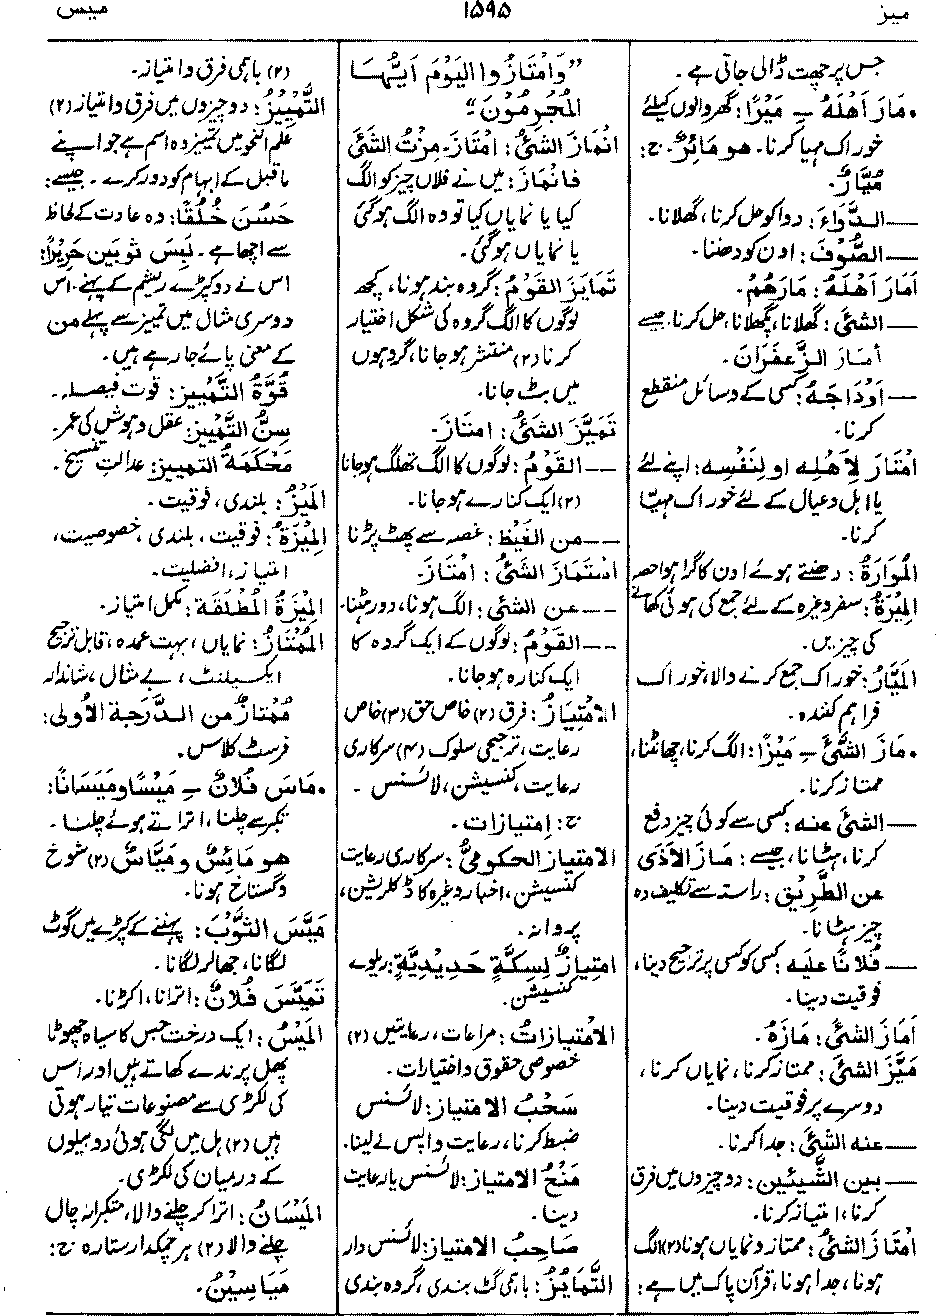 میز
۱۵۹۵
میس
جس پر چھت ڈالی جاتی ہے۔
• مَارَ اَهْلَهُ ـِ مَيْرًا: گھر والوں کیلئے
خوراک مہیا کرنا۔ هو مَائِرٌ۔ ج:
مُيَّارٌ۔
— الدَّوَاءَ: دوا کو حل کرنا، گھلانا۔
— الصُّوْفَ: اون کو دھننا۔
اَمَارَ اَهْلَهُ: مَارَهُمْ۔
— الشئَ: گھلانا، پگھلانا، حل کرنا، جیسے
أمَارَ الزَّعفَرَانَ۔
— اَوْدَاجَهُ: کسی کے وسائل منقطع
کرنا۔
اِمْتَارَ لِأَهْلِه او لِنَفْسِه: اپنے لئے
یا اہل و عیال کے لئے خوراک مہیا
کرنا۔
المُوَارَةُ: دھنتے ہوئے اون کا گرا ہوا حصہ
المِيْرَةُ: سفر وغیرہ کے لئے جمع کی ہوئی کھانے
کی چیزیں۔
المَيَّارُ: خوراک جمع کرنے والا، خوراک
فراہم کنندہ۔
• مَازَ الشَّئَ ـِ مَيْزًا: الگ کرنا، چھانٹنا،
ممتاز کرنا۔
— الشئَ عنه: کسی سے کوئی چیز دفع
کرنا، ہٹانا، جیسے: مَازَ الأَذَى
عن الطَّرِيْق: راستہ سے تکلیف دہ
چیز ہٹانا۔
— فُلَانًا عليه: کسی کو کسی پر ترجیح دینا،
فوقیت دینا۔
اَمَازَ الشئَ: مَازَهُ۔
مَيَّزَ الشئَ: ممتاز کرنا، نمایاں کرنا،
دوسرے پر فوقیت دینا۔
— عنه الشَّئَ: جدا کرنا۔
— بين الشَّيئين: دو چیزوں میں فرق
کرنا، امتیاز کرنا۔
اِمْتَازَ الشئُ: ممتاز و نمایاں ہونا (۲) الگ
ہونا، جدا ہونا، قرآن پاک میں ہے:
”وَامْتَازُوا الْيَوْمَ اَيُّهَا
المُجْرِمُوْنَ“
اِنْمَازَ الشئُ: اِمْتَازَ۔ مِزْتُ الشئَ
فَانْمَازَ: میں نے فلاں چیز کو الگ
کیا یا نمایاں کیا تو وہ الگ ہو گئی
یا نمایاں ہو گئی۔
تَمَايَزَ القَوْمُ: گروہ بند ہونا، کچھ
لوگوں کا الگ گروہ کی شکل اختیار
کرنا (۲) منتشر ہو جانا، گروہوں
میں بٹ جانا۔
تَمَيَّزَ الشئُ: اِمْتَازَ۔
— القَوْمُ: لوگوں کا الگ تھلگ ہو جانا
(۲) ایک کنارے ہو جانا۔
— من الغَيْظ: غصہ سے پھٹ پڑنا
اِسْتَمَازَ الشئُ: اِمْتَازَ۔
— عن الشئى: الگ ہونا، دور ہٹنا۔
— القَوْمُ: لوگوں کے ایک گروہ کا
ایک کنارہ ہو جانا۔
الامْتِيَازُ: فرق (۲) خاص حق (۳) خاص
رعایت، ترجیحی سلوک (۴) سرکاری
رعایت، کنسیشن، لائسنس۔
ج: اِمْتِيَازَات۔
الامْتِيَاز الحكومىُّ: سرکاری رعایت
کنسیشن، اخبار وغیرہ کا ڈکلریشن،
پروانہ۔
اِمْتِيَازٌ لِسِكَّةٍ حَدِيْدِيَّةٍ: ریلوے
کنسیشن۔
الامْتِيَازَاتُ: مراعات، رعایتیں (۲)
خصوصی حقوق و اختیارات۔
سَحْبُ الامتياز: لائسنس
ضبط کرنا، رعایت واپس لے لینا۔
مَنْحُ الامتياز: لائسنس یا رعایت
دینا۔
صَاحِبُ الامتياز: لائسنس دار
التَّمَايُزُ: باہمی گٹ بندی، گروہ بندی
(۲) باہمی فرق و امتیاز۔
التَّمْيِيْزُ: دو چیزوں میں فرق و امتیاز (۲)
علم النحو میں تمییز وہ اسم ہے جو اپنے
ماقبل کے ابہام کو دور کرے۔ جیسے:
حَسُنَ خُلُقًا: وہ عادت کے لحاظ
سے اچھا ہے۔ لَبِسَ ثَوبَين حَرِيْرًا:
اس نے دو کپڑے ریشم کے پہنے۔ اس
دوسری مثال میں تمییز سے پہلے من
کے معنی پائے جا رہے ہیں۔
قُوَّةُ التَّمْيِيز: قوت فیصلہ۔
سِنُّ التَّمْيِيز: عقل و ہوش کی عمر۔
مَحْكَمَةُ التمييز: عدالتِ تنسیخ۔
المَيْزُ: بلندی، فوقیت۔
المِيْزَةُ: فوقیت، بلندی، خصوصیت،
امتیاز، افضلیت۔
المِيْزَةُ المُطْلَقَة: مکمل امتیاز۔
المُمْتَازُ: نمایاں، بہت عمدہ، قابل ترجیح
ایکسیلنٹ، بے مثال، شاندار
مُمْتازٌ من الدَّرَجة الأُولى:
فرسٹ کلاس۔
• مَاسَ فُلانٌ ـِ مَيْسًا ومَيَسَانًا:
تکبر سے چلنا، اتراتے ہوئے چلنا۔
هو مَائِسٌ ومَيَّاسٌ (۲) شوخ
و گستاخ ہونا۔
مَيَّسَ الثَّوْبَ: پہننے کے کپڑے میں گوٹ
لگانا، جھالر لگانا۔
تَمَيَّسَ فُلانٌ: اترانا، اکڑنا۔
المَيْسُ: ایک درخت جس کا سیاہ چھوٹا
پھل پرندے کھاتے ہیں اور اس
کی لکڑی سے مصنوعات تیار ہوتی
ہیں (۲) ہل میں لگی ہوئی دو بیلوں
کے درمیان کی لکڑی۔
المَيْسَانُ: اترا کر چلنے والا، متکبرانہ چال
چلنے والا (۲) ہر چمکدار ستارہ ج:
مَيَاسِيْنُ۔